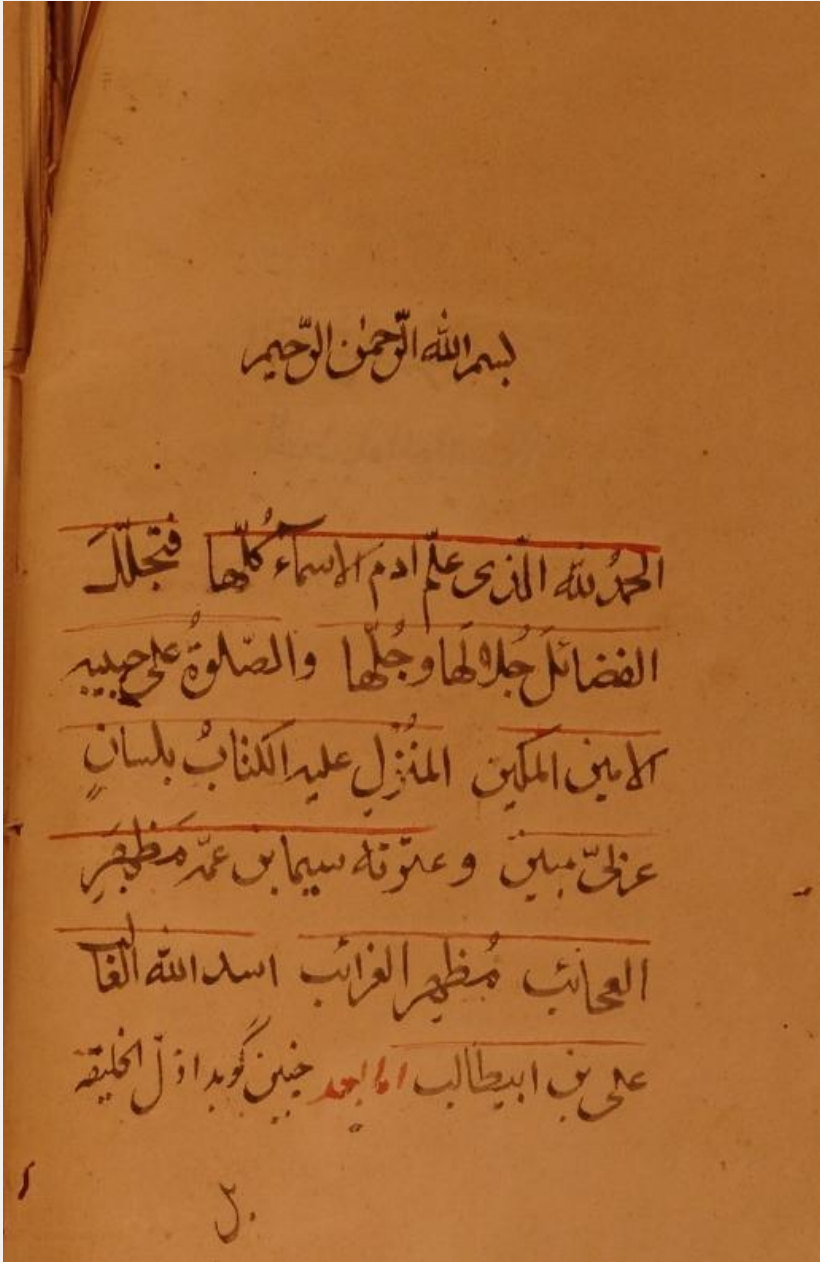 بسم الله الرّحمٰن الرّحیم
الحمدُ لله الّذی علّم ادم الاسمآء کُلّها فتجلّلَ
الفضائلَ جُلالَها وجُلّها والصّلوةُ علی حبیبه
الامین المکین المنُزِل علیه الکتابُ بلسانٍ
عربیّ مبین و عترته سیما بن عمّه مَظهَرِ
العجائب مُظهِر الغرائب اسد الله الغالب
علی بن ابیطالب اما بعد چنین گوید اذلّ الخلیقه